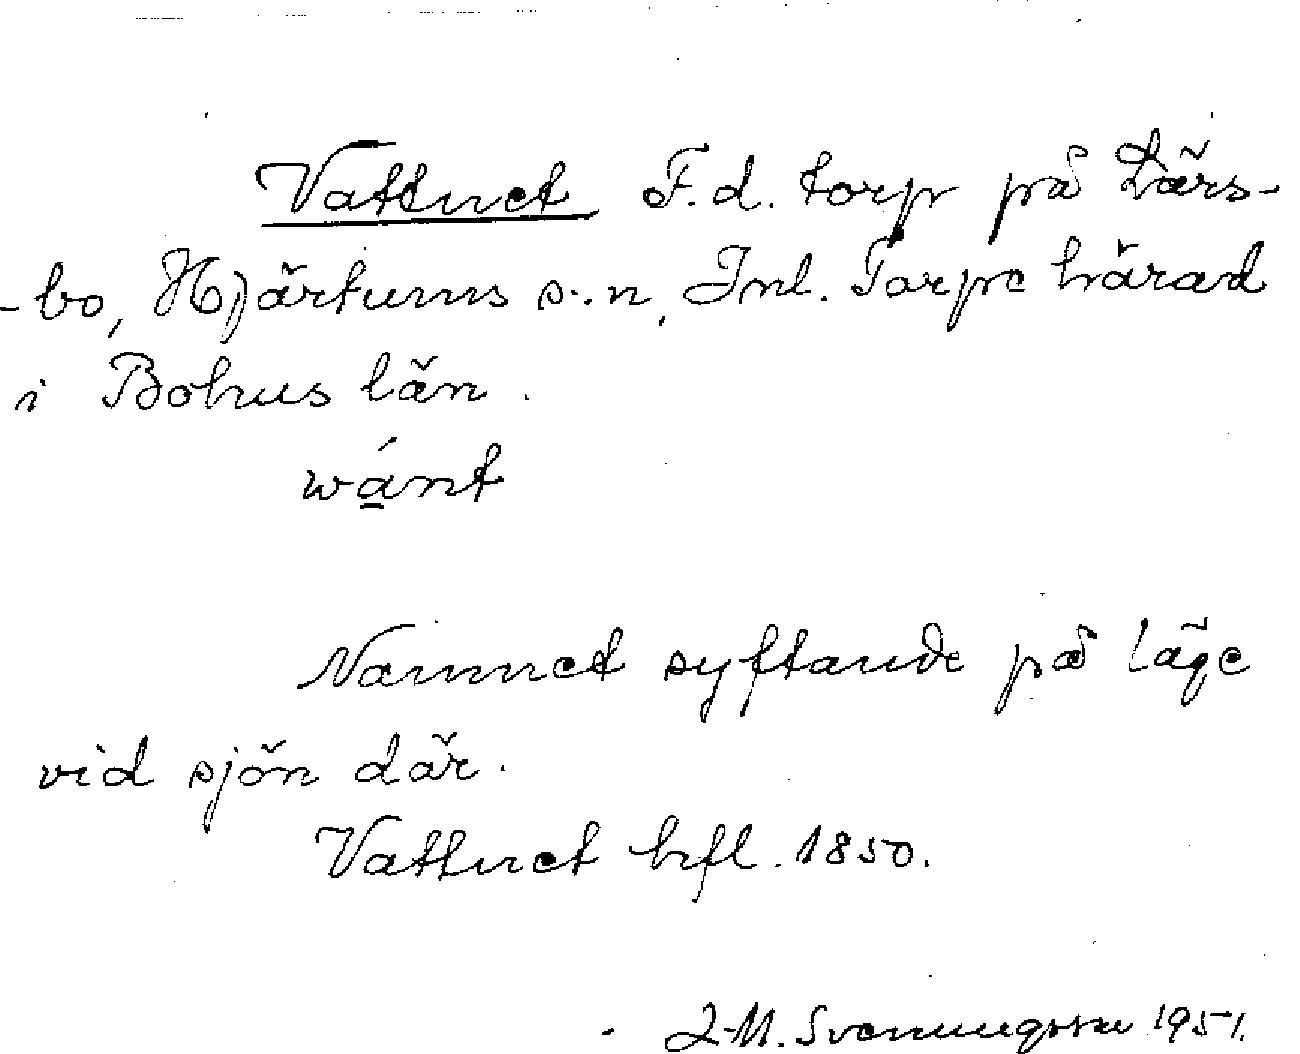 Vattnet F.d. torp på Lärs-
-bo, Hjärtums s:n, Inl. Torpe härad
i Bohus län.
wánt
Namnet syftande på läge
vid sjön där.
Vattnet hfl. 1850.
J-M. Svenungsson 1951.